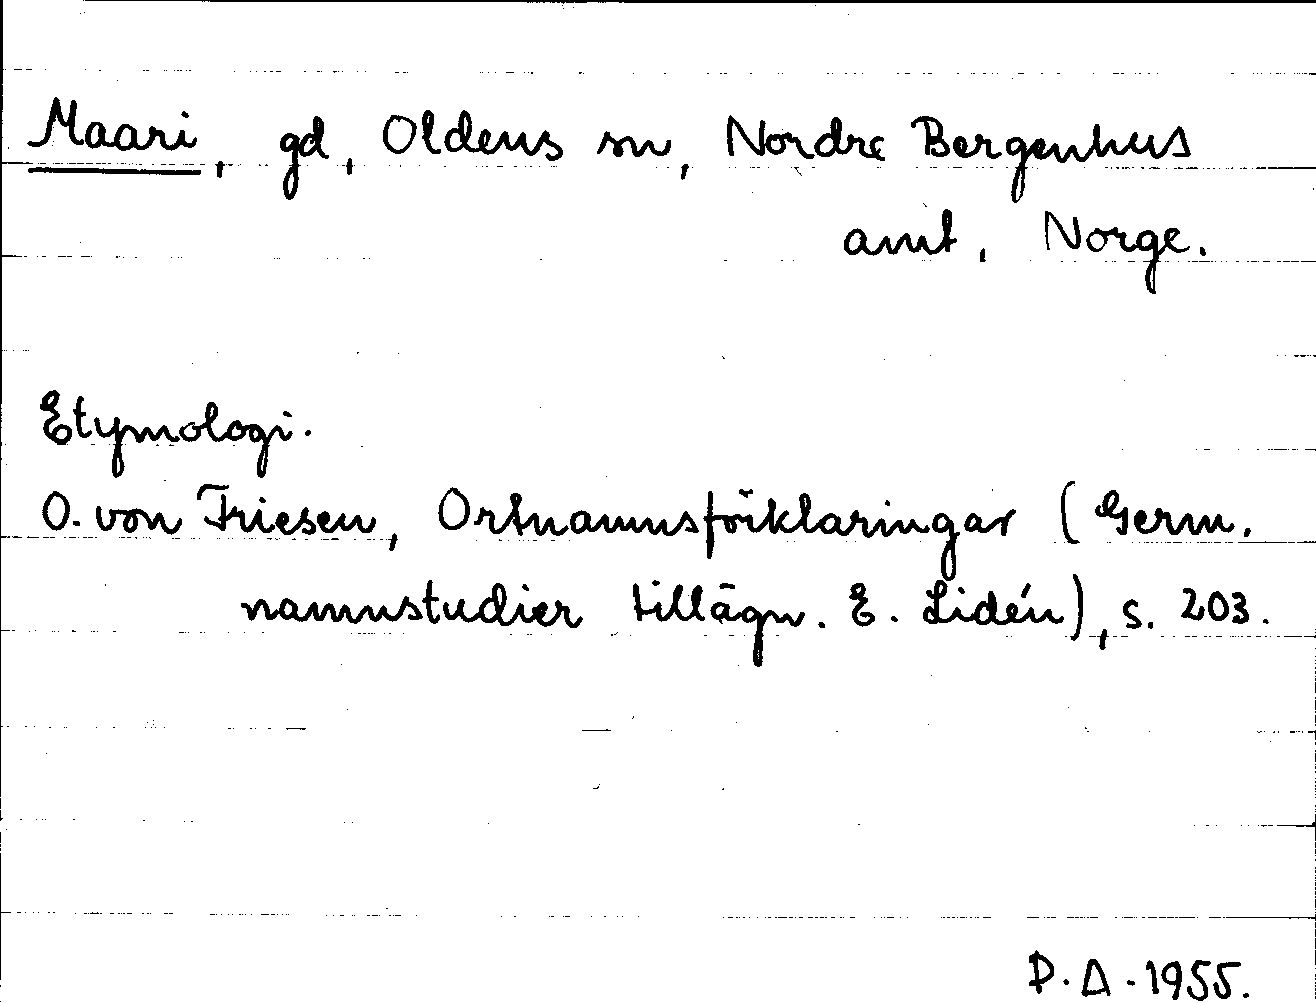 Maari, gd, Oldens sn, Nordre Bergenhus
amt, Norge.
Etymologi.
O. von Friesen, Ortnamnsförklaringar (Germ.
namnstudier tillägn. E. Lidén), s. 203.
D. A. 1955.